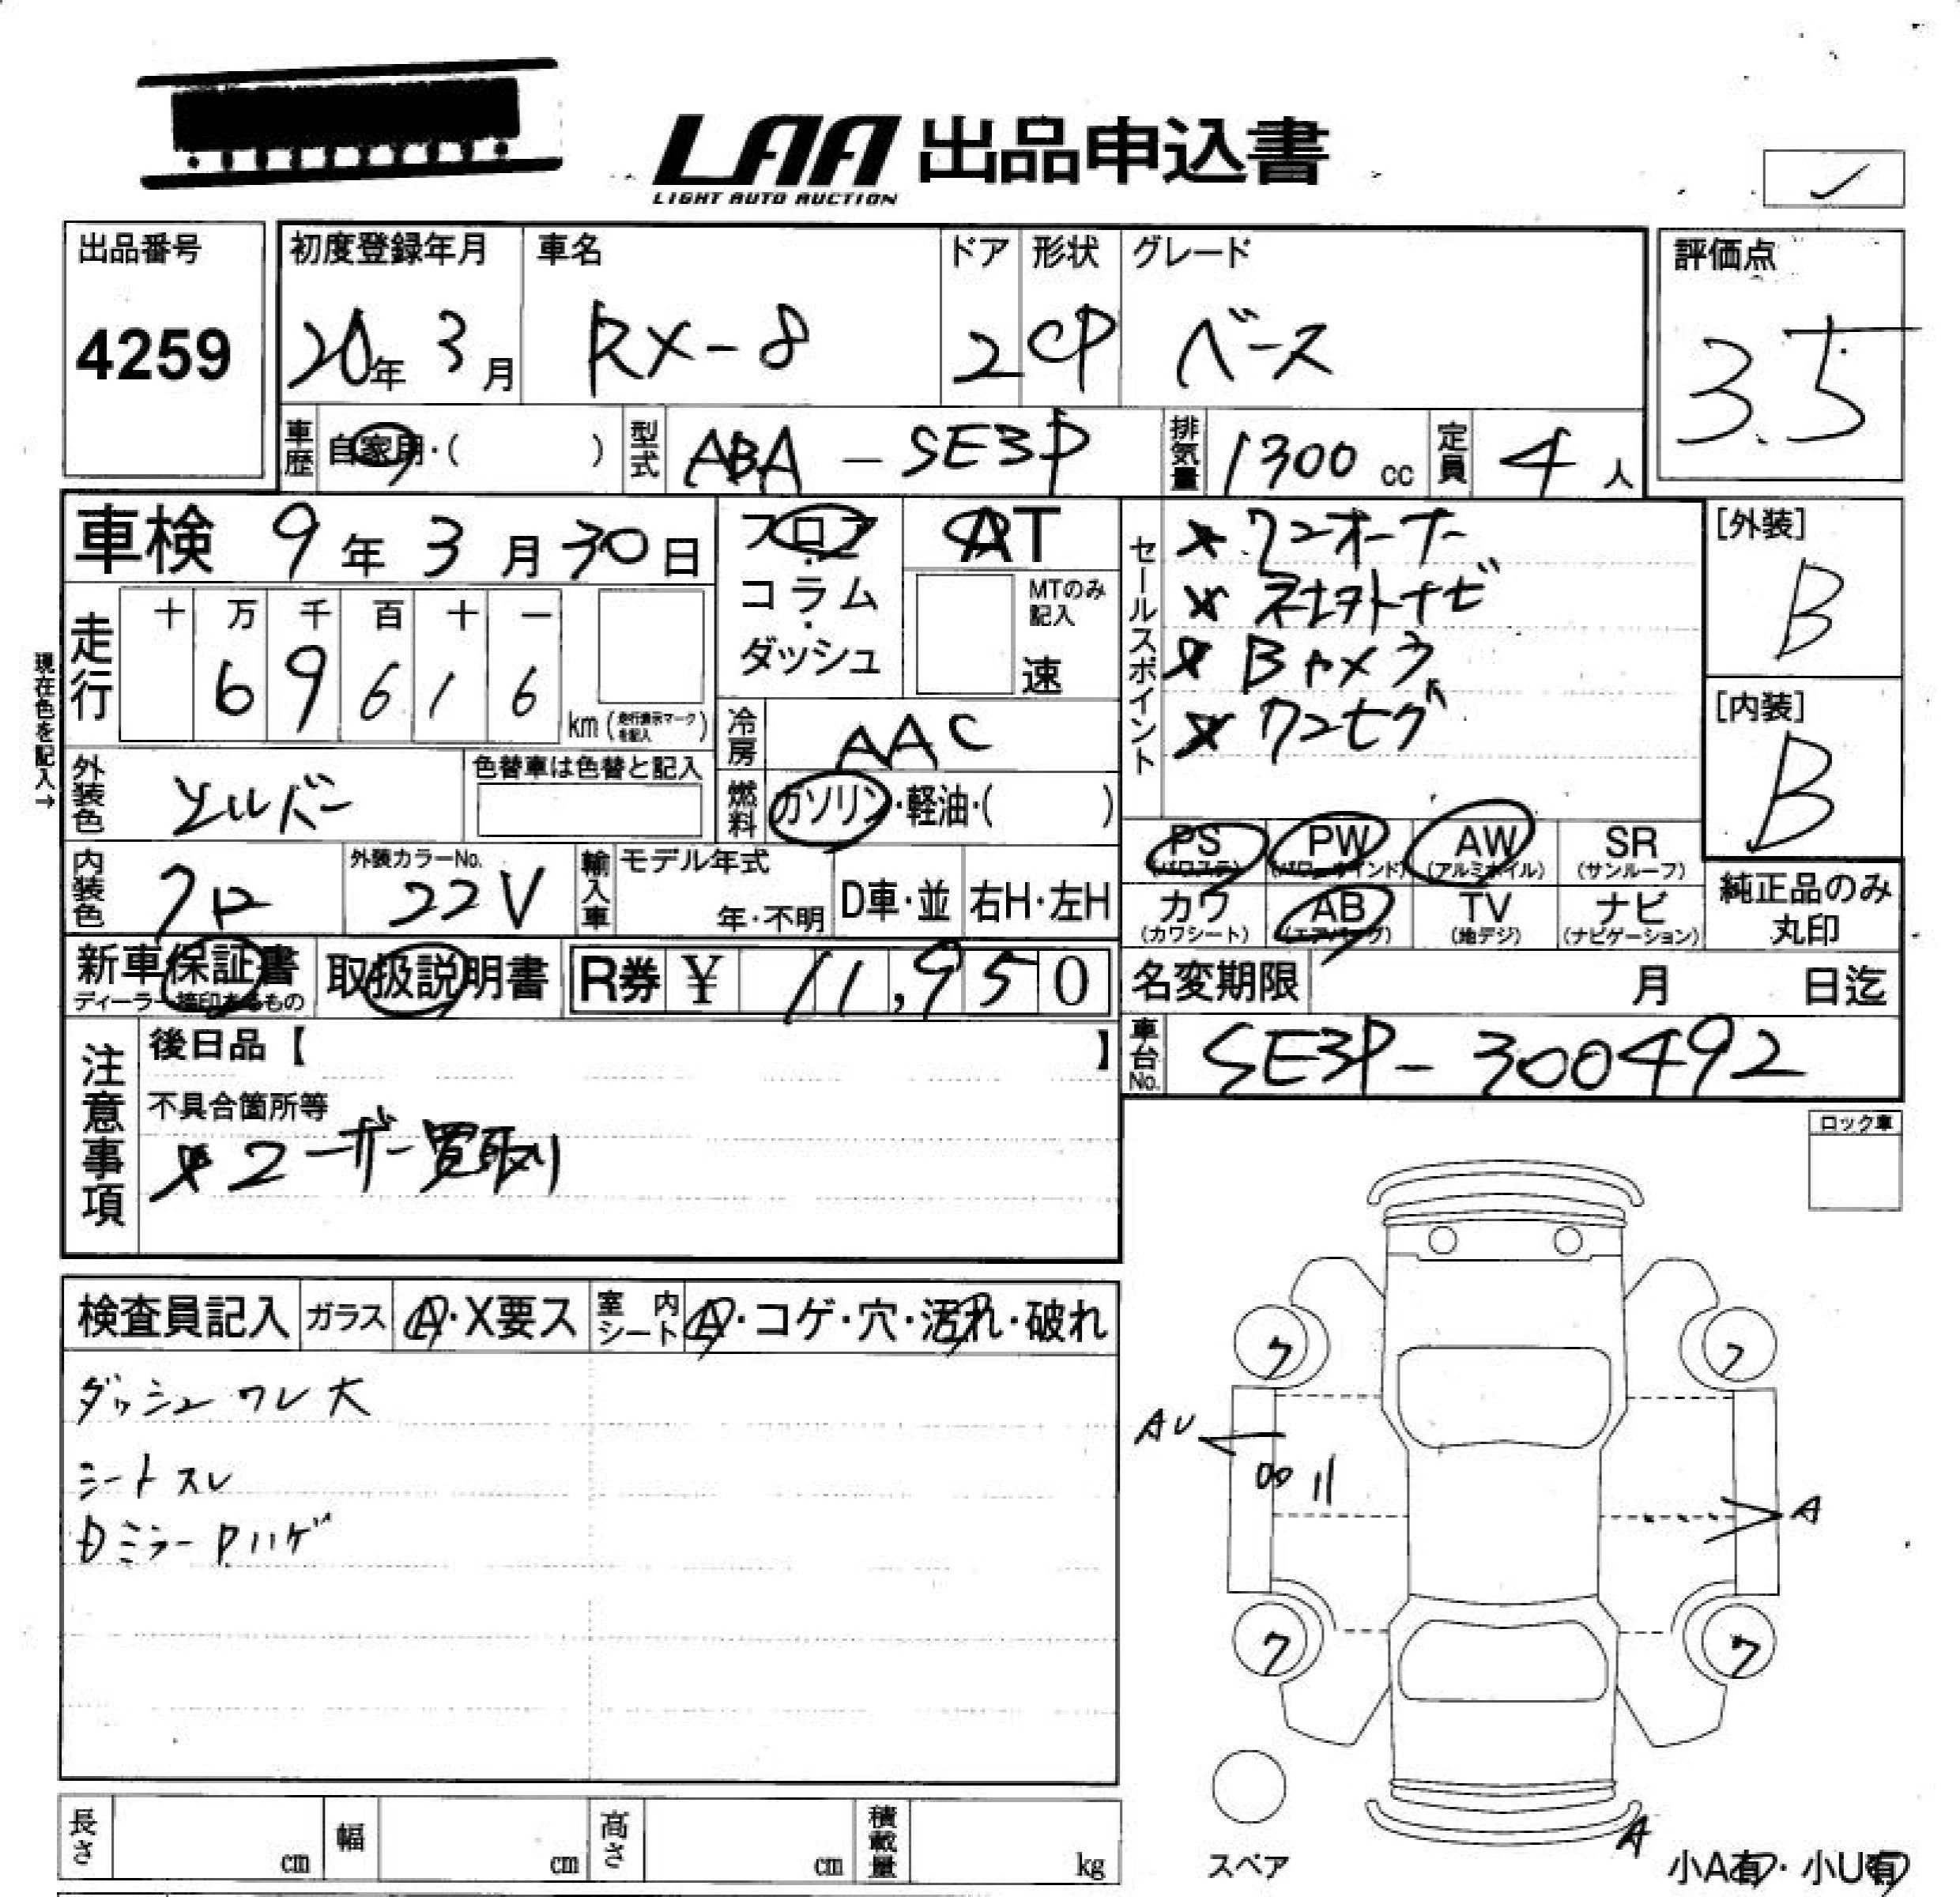 LAA 出品申込書
LIGHT AUTO AUCTION
出品番号
4259
初度登録年月
20年 3月
車名
RX-8
ドア
2
形状
CP
グレード
ベース
評価点
3.5
車歴 自家用・( )
型式 ABA - SE3P
排気量 1300 cc
定員 4 人
車検 9年 3月 30日
フロア・コラム・ダッシュ
AT
MTのみ記入
速
走行
十 万 千 百 十 一
6 9 6 1 6
km (走行表示マークを記入)
現在色を記入→
冷房 AAC
外装色 シルバー
色替車は色替と記入
燃料 ガソリン・軽油・( )
内装色 クロ
外装カラーNo.
22V
輸入車
モデル年式
年・不明
D車・並
右H・左H
セールスポイント
ワンオーナー
社外ナビ
Bカメラ
ワンセグ
[外装]
B
[内装]
B
PS (パワステ)
PW (パワーウインド)
AW (アルミホイル)
SR (サンルーフ)
カワ (カワシート)
AB (エアバッグ)
TV (地デジ)
ナビ (ナビゲーション)
純正品のみ丸印
新車保証書
ディーラー捺印あるもの
取扱説明書
R券 ¥ 11,950
名変期限 月 日迄
車台No. SE3P-300492
注意事項
後日品【 】
不具合箇所等
ユーザー買取り
ロック車
検査員記入
ガラス A・X要ス
室内シート A・コゲ・穴・汚れ・破れ
ダッシュ ワレ大
シートスレ
DミラーPハゲ
AU
A
7
7
7
7
A
スペア
小A有・小U有
長さ cm
幅 cm
高さ cm
積載量 kg